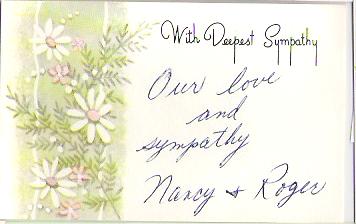 With Deepest Sympathy
Our love
and
sympathy
Nancy & Roger